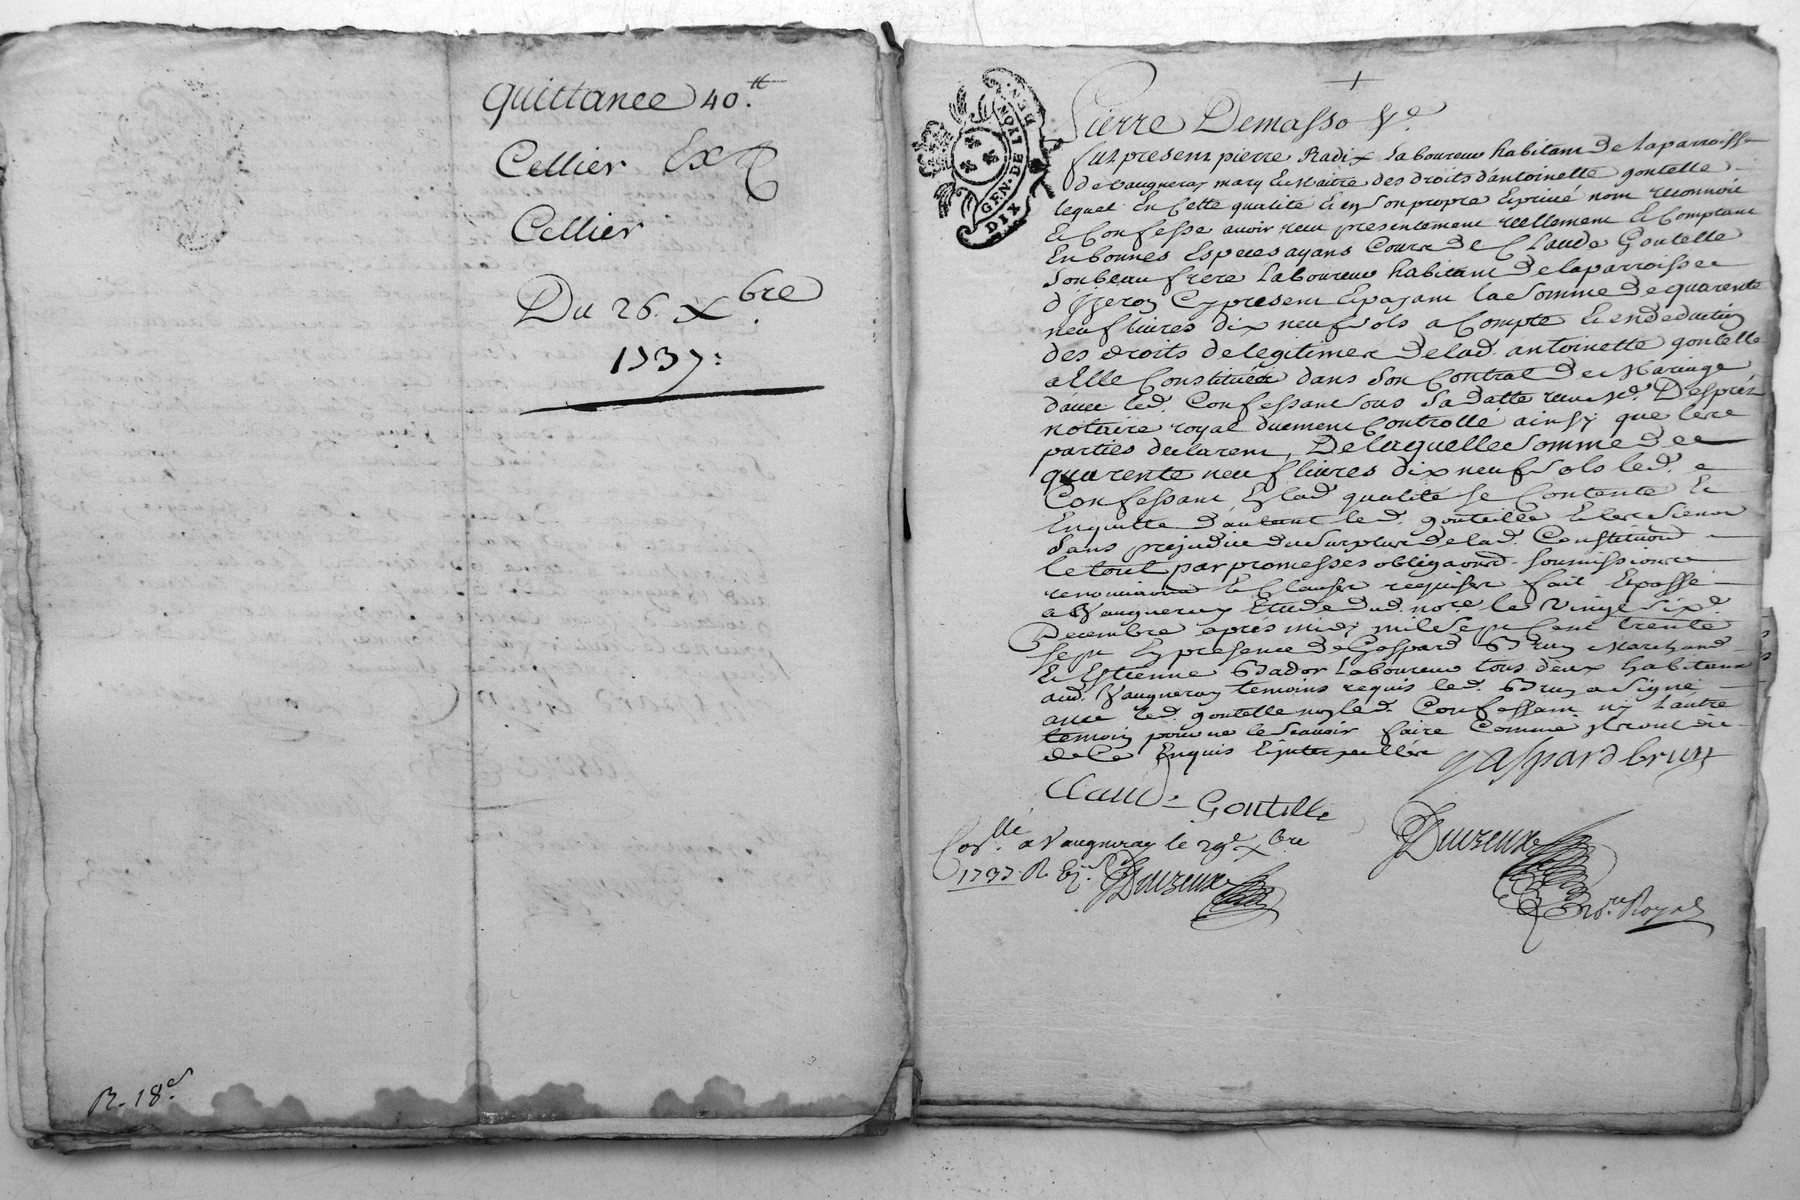 Quittance 40.tt
Cellier Ex
Cellier
Du 26. Xbre
1737:
R. 18s.
GEN. DE LYON
DIX DEN.
Pierre Demasso
fut present pierre Radix Laboureur habitant de Laparroisse
de Vaugneray mary et maitre des droits d'antoinette goutelle
lequel En Cette qualité et en Son propre et privé nom reconnoit
Et Confesse avoir reçu presentement reellement Et Comptant
En bonnes Especes ayans Cours de Claude Goutelle
Son beau frere Laboureur habitant de laparroisse
d'Yzeron Cy present Et payant la Somme de quarente
neuf livres dix neuf sols a Compte Et en deduction
des droits de legitimes de lad. antoinette goutelle
a Elle Constituée dans Son Contrat de Mariage
d'avec led. Confessant sous Sa datte reçu Me. Desprez
notaire royal duement Controllé ainsy que les
parties declarent, De laquelle Somme de
quarente neuf livres dix neuf sols led.
Confessant En lad. qualité se Contente Et
En quitte d'autant led. goutelle Et les Siens
Sans prejudice du Surplus de lad. Constitution
le tout par promesses obligaons. Soumissions
renonciaons et Clauses requises fait Et passé
a Vaugneray Etude dud. nore. le vingt six
Decembre après midy mil sept Cent trente
sept En presence de Gaspard Brun Marchand
Et Estienne Bador Laboureur tous deux habitans
aud. Vaugneray temoins requis led. Brun a Signé
avec led. goutelle non led. Confessant ny l'autre
temoin pour ne le Scavoir faire Comme ils ont dit
de Ce Enquis Et interpellés
gaspard brun
Claude Goutelle
Corllé. a Vaugneray le 29e Xbre
1737 R.
Nore. Royal